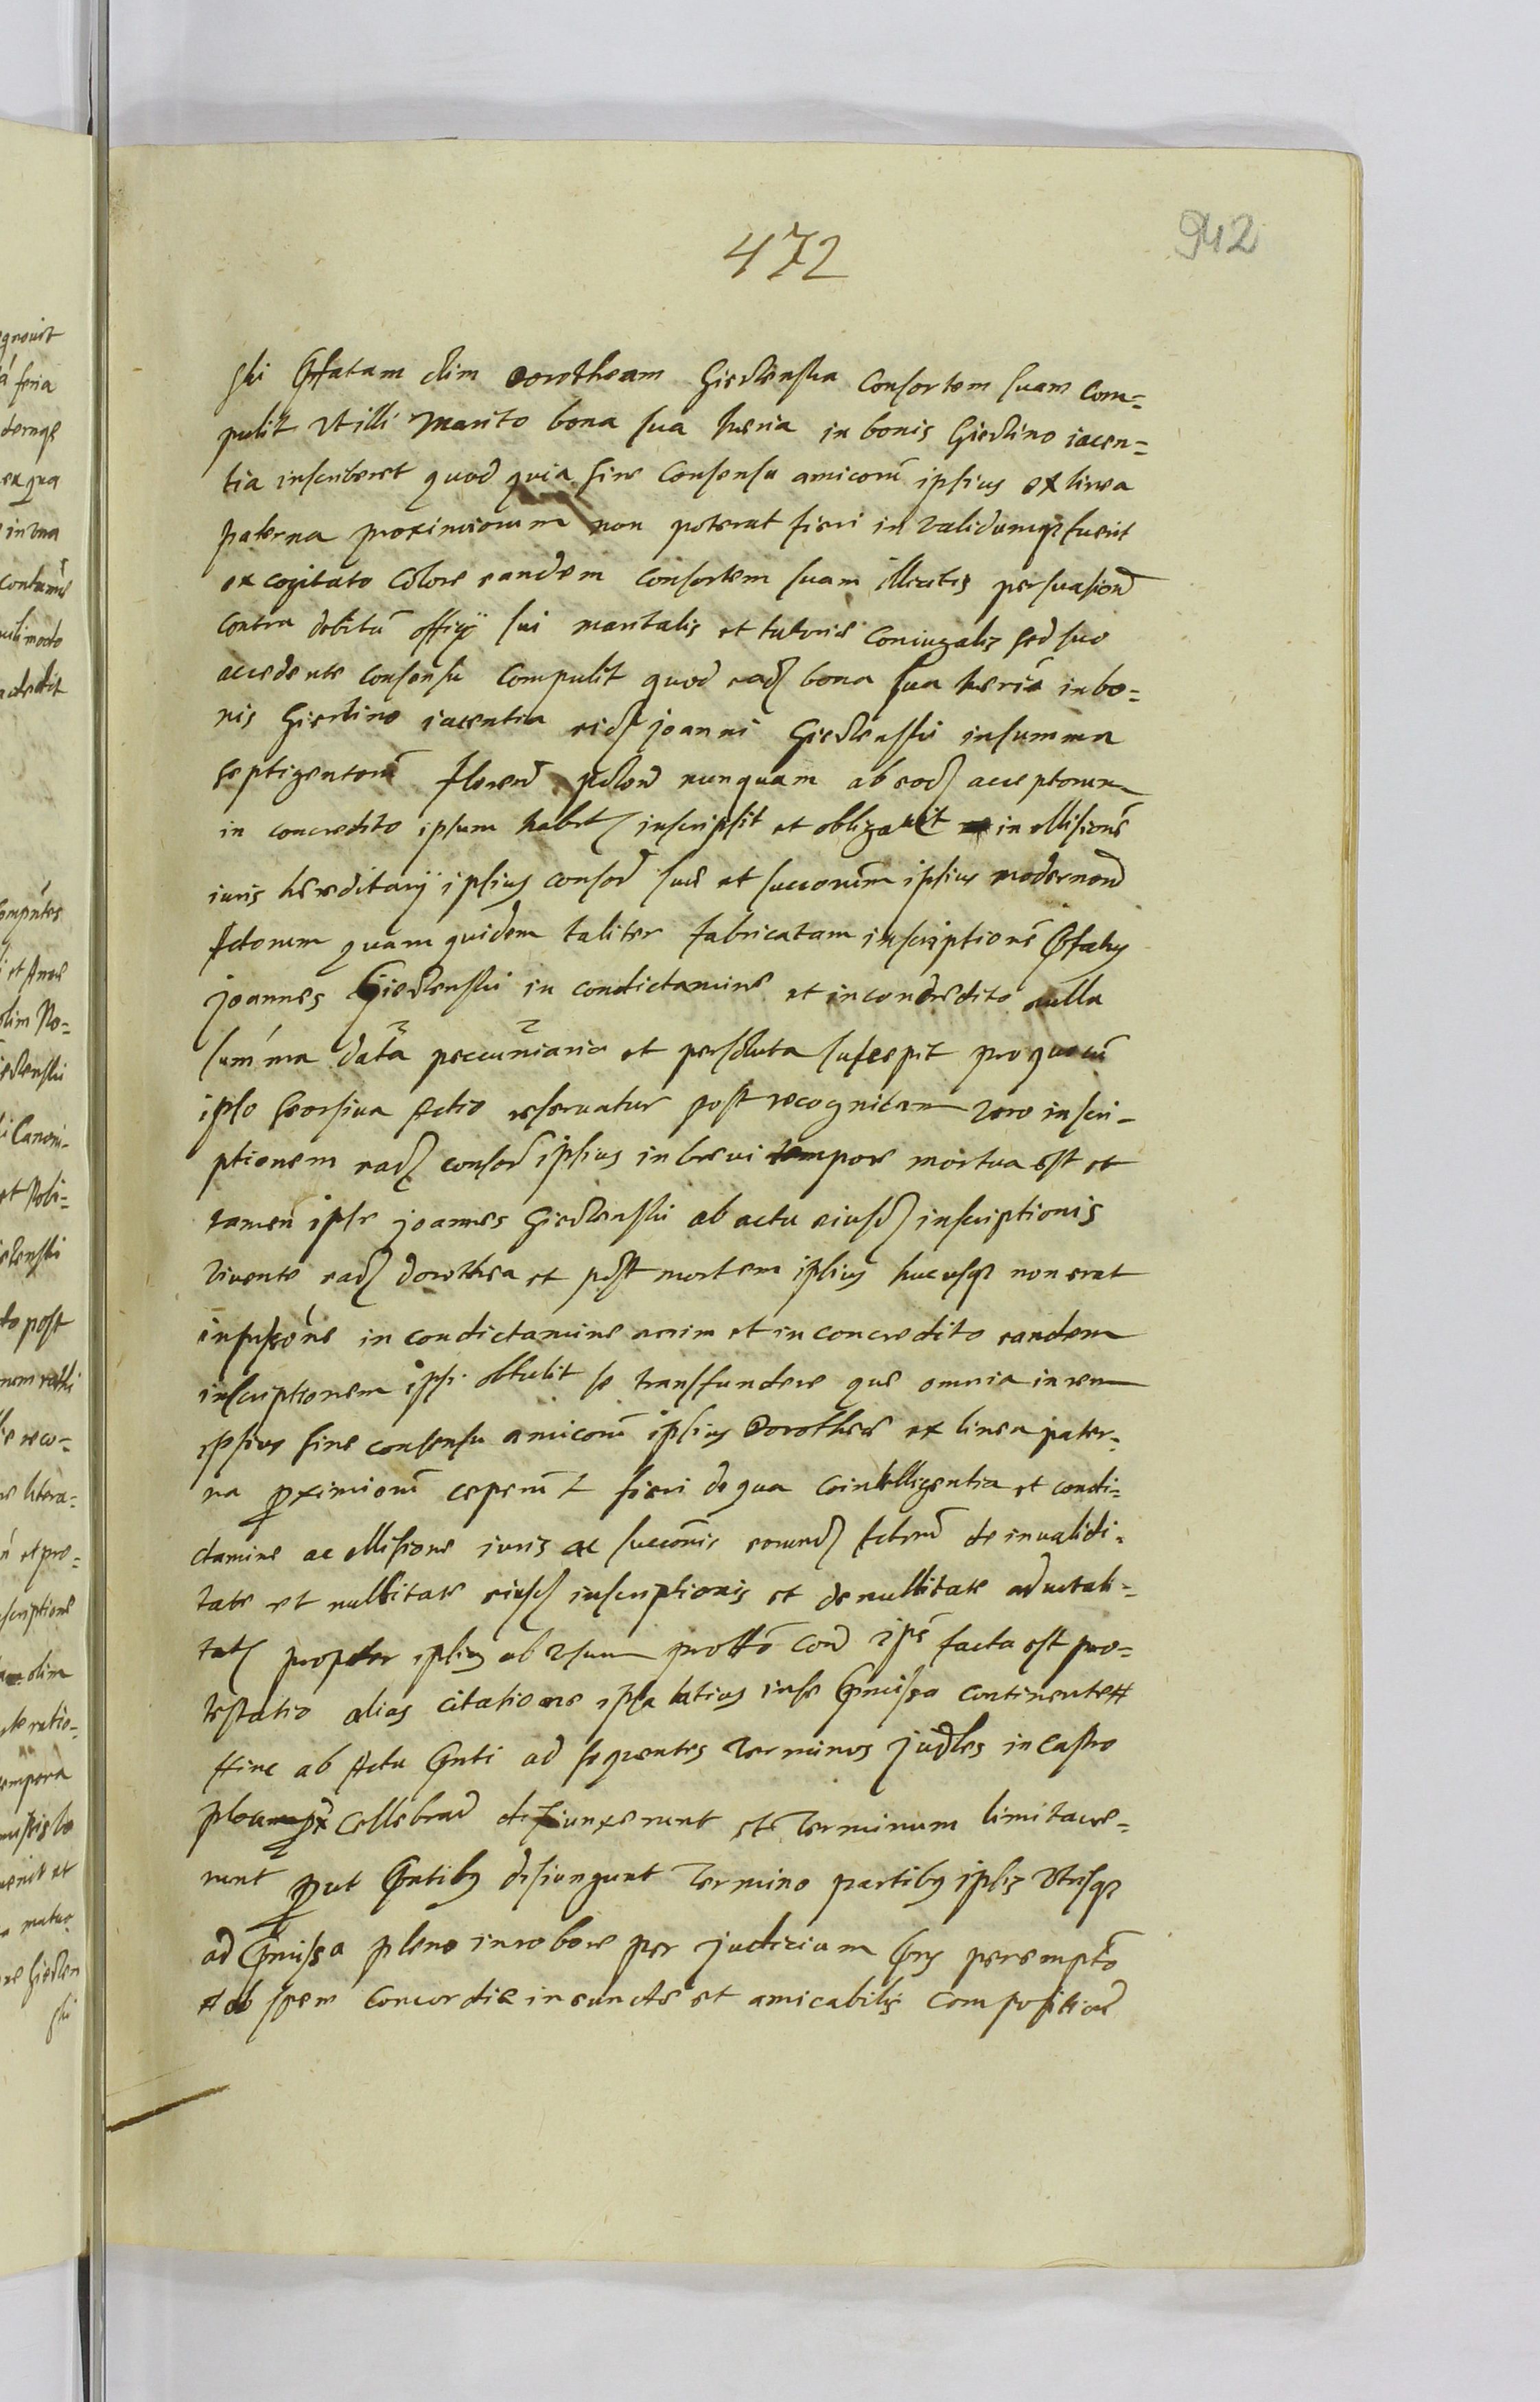 472
942
ski Pfatam olim dorotheam Giedlenska Consortem suam com=
pulit Ut illi Marito bona sua hæria in bonis Giedlino iacen=
tia inscriberet quod quia sine Consensu amicorū ipsius ex linea
paterna proximiorum non poterat fieri in validumqꝫ fuerit
excogitato Colore eandem Consortem suam illicitis persuasion
Contra debitū officÿ sui maritalis et tutoriæ Coniugalis sed suo
accedente Consensu Compulit quod ead bona sua hæria in bo=
nis Giedlino iacentia eid Joanni Giedlenski in summa
septigentorū floren polon nunquam ab eod acceptorum
in concredito ipsum habet inscripsit et obligavit in ellisionē
iuris hereditarÿ ipsius consor suæ et succorum ipsius modernor
Actorum quam quidem taliter fabricatam inscriptionē Pfatus
Joannes Giedlenski in condictamine et in condredito nulla
summa data peccuniaria et persoluta suscepit pro quo cū
ipso seorsiva Actio reservatur post recognitam vero inscri-
ptionem ead consor ipsius in brevi tempore mortua est et
tamen ipse Joannes Giedlenski ab actu eiusd inscriptionis
vivente ead dorothea et post mortem ipsius hucusqꝫ non erat
in in condictamine enim et in concredito eandem
inscriptionem ipsi obtulit se transfundere quæ omnia in rem
ipsius sine consensu amicorū ipsius Dorotheæ ex linea pater=
na ꝓximiorū ceperūt fieri de qua cointelligentia et condi=
ctamine ac ellisione iuris ac succonis eorund Actorū de invalidi=
tate et nullitate eiusd inscriptionis et de nullitate advitali=
tat propter ipsius abusum cor ipē facta est pro=
testatio alias citatione ipsa latius in se Pmissa continente
Hinc ab Actu Pnti ad sequentes Terminos Judles in Castro
Cellebran disiunxerunt et Terminum limitave=
runt ꝓut Pntibꝫ disiungunt Termino partibꝫ ipsis Utrisqꝫ
ad Pmissa pleno in robore per Judicium Pns perempto
ob spem Concordiæ ineundæ et amicabilis Composition